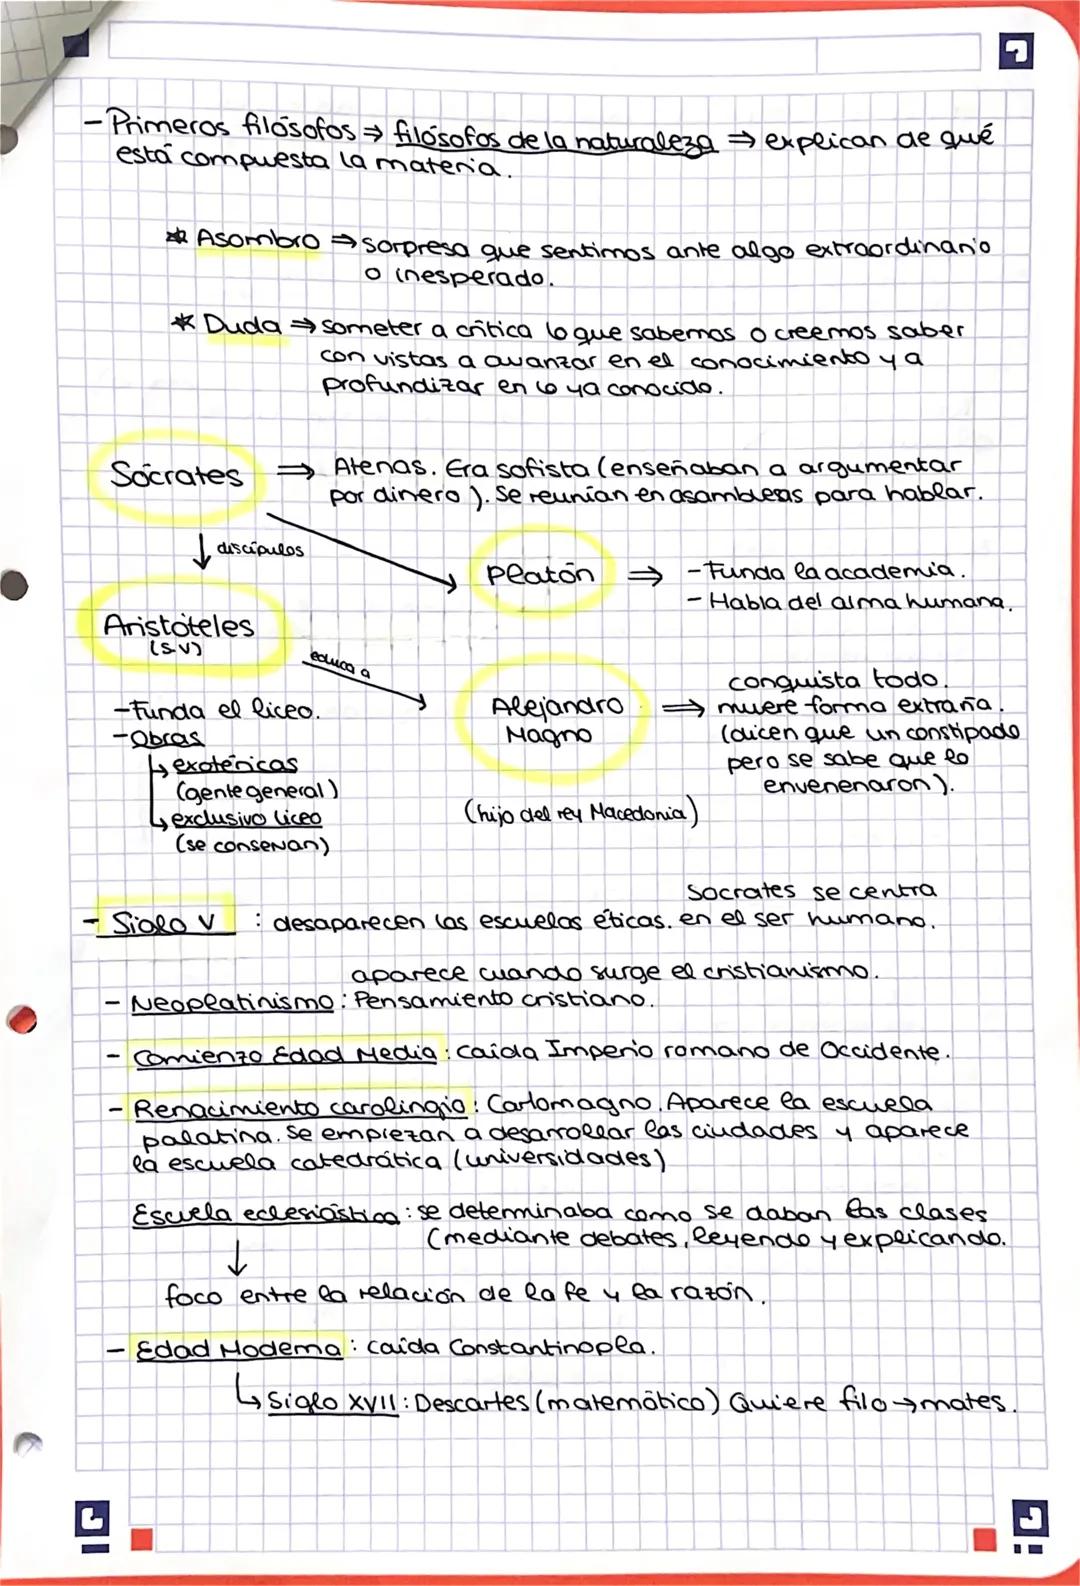 - Primeros filósofos ⇒ filósofos de la naturaleza ⇒ explican de qué
está compuesta la materia.
* Asombro ⇒ sorpresa que sentimos ante algo extraordinario
o inesperado.
* Duda ⇒ someter a crítica lo que sabemos o creemos saber
con vistas a avanzar en el conocimiento y a
profundizar en lo ya conocido.
Sócrates ⇒ Atenas. Era sofista (enseñaban a argumentar
por dinero). Se reunían en asambleas para hablar.
↓ discípulos
Platón ⇒ - Funda la academia.
- Habla del alma humana.
Aristóteles
(s.V)
educa a
Alejandro
Magno
⇒ conquista todo.
muere forma extraña.
(dicen que un constipado
pero se sabe que lo
envenenaron).
(hijo del rey Macedonia)
- Funda el liceo.
- Obras
↳ exotéricas
(gente general)
↳ exclusivo liceo
(se conservan)
- Siglo V : desaparecen las escuelas éticas. Socrates se centra
en el ser humano.
aparece cuando surge el cristianismo.
- Neoplatinismo: Pensamiento cristiano.
- Comienzo Edad Media: caída Imperio romano de Occidente.
- Renacimiento carolingio: Carlomagno. Aparece la escuela
palatina. Se empiezan a desarrollar las ciudades y aparece
la escuela catedrática (universidades)
Escuela eclesiástica: se determinaba como se daban las clases
(mediante debates, leyendo y explicando.
↓
foco entre la relación de la fe y la razón.
- Edad Moderna: caída Constantinopla.
↳ Siglo XVII: Descartes (matemático) Quiere filo → mates.